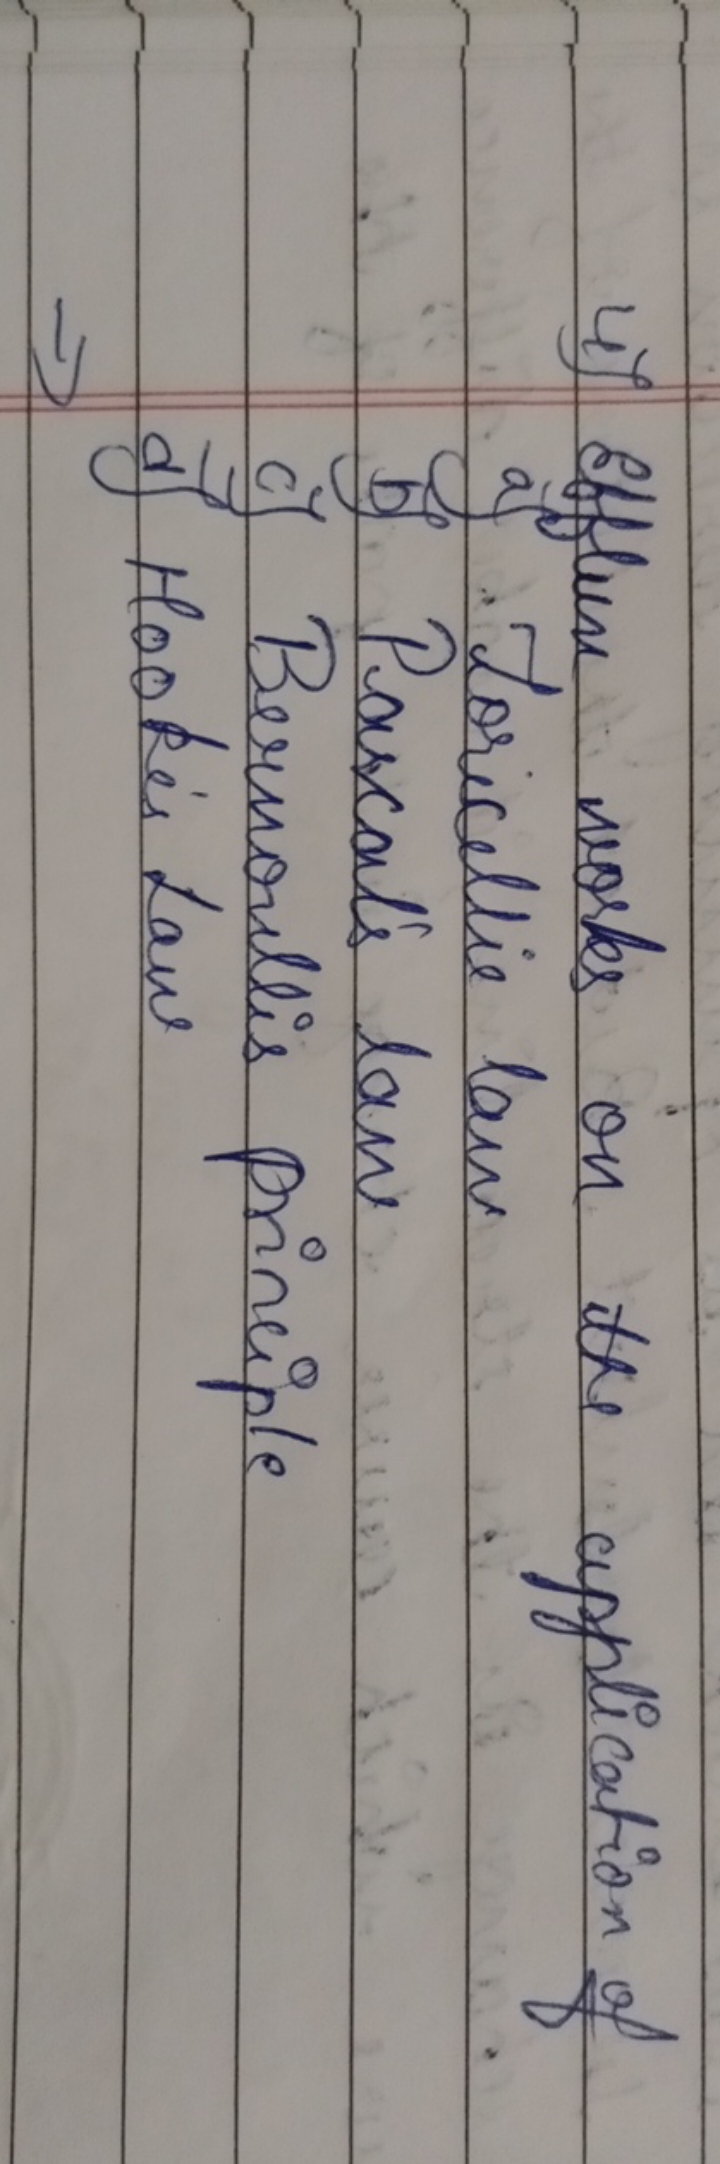 4) Efflux works on the application of
a) Toricellie law
b) Pascal's law
c) Bernoullis principle
d) Hooke's Law
→